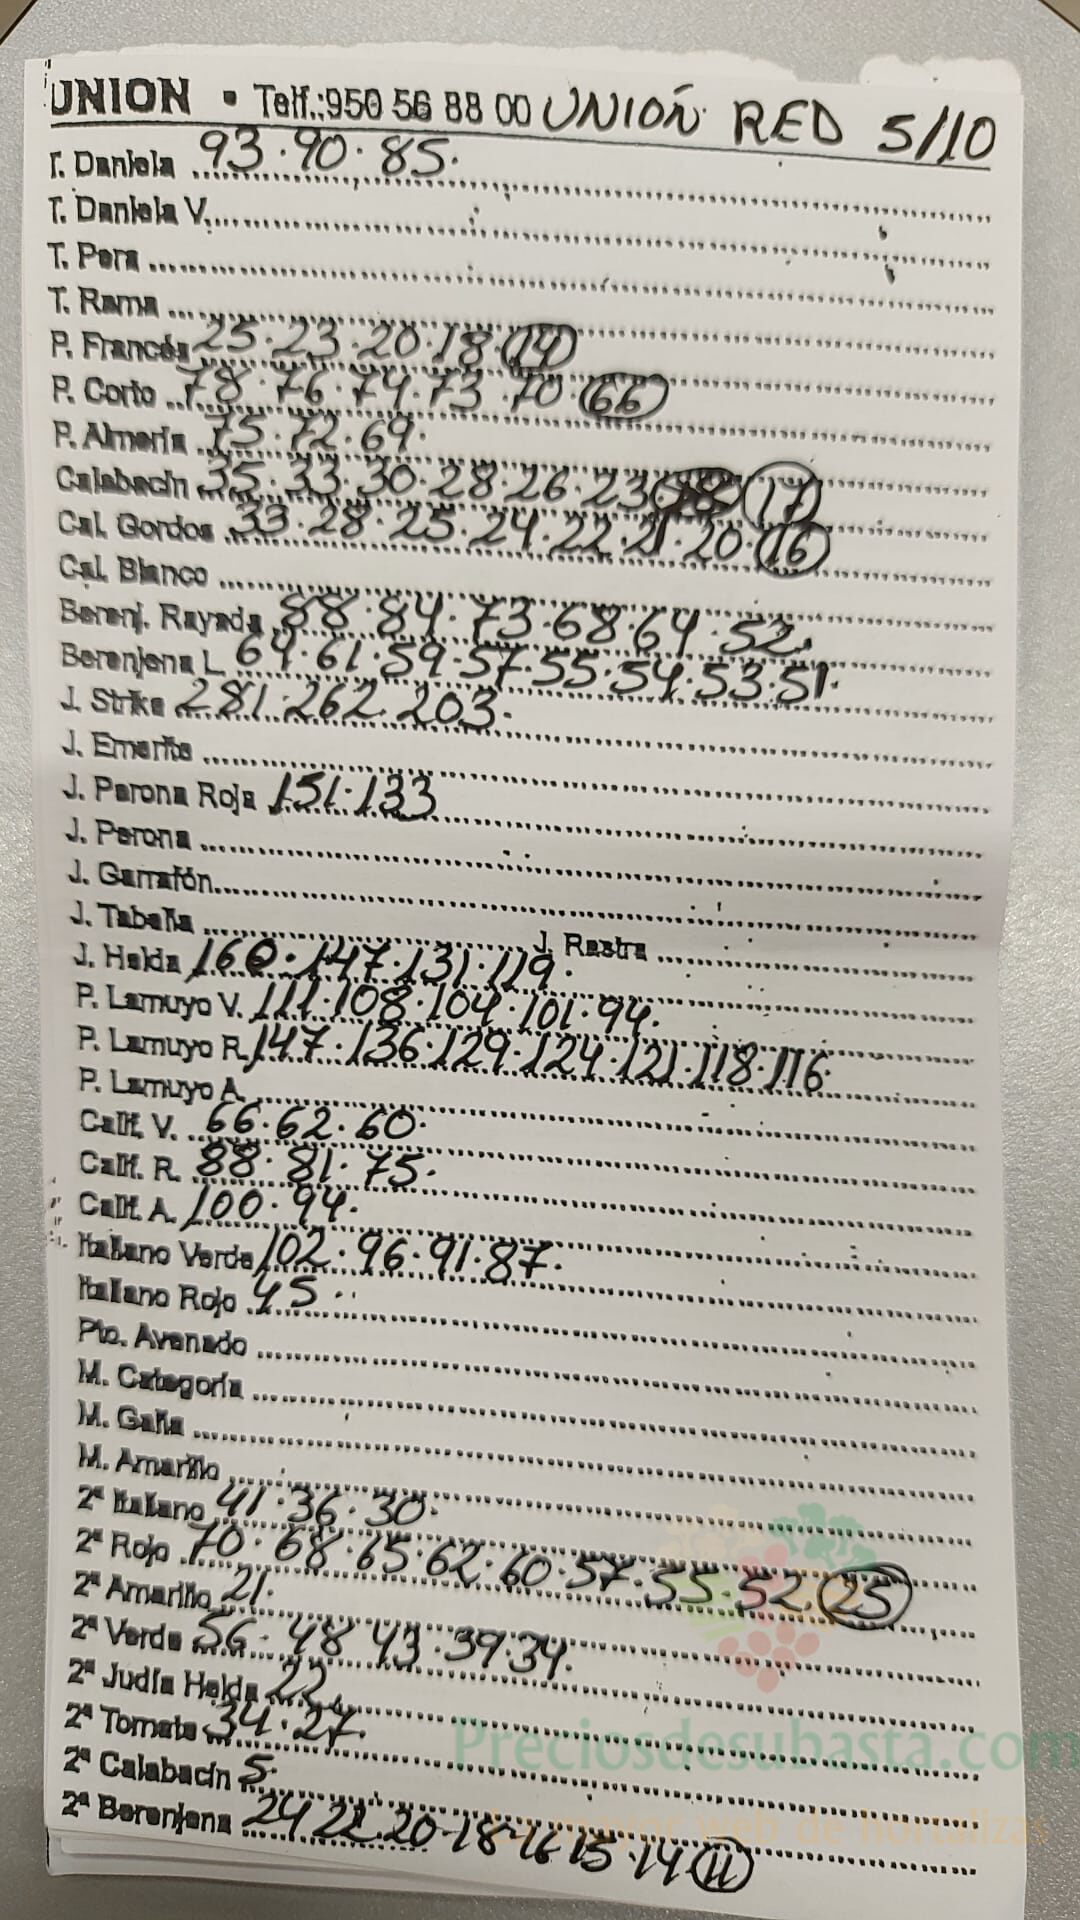 UNION • Telf.:950 56 88 00 UNIÓN RED 5/10
T. Daniela 93·90·85·
T. Daniela V.
T. Pera
T. Rama
P. Francés 25·23·20·18·14
P. Corto 78·76·74·73·70·66
P. Almería 75·72·69·
Calabacín 35·33·30·28·26·23 17
Cal. Gordos 33·28·25·24·22·21·20·16
Cal. Blanco
Berenj. Rayada 88·84·73·68·64·52.
Berenjena L. 64·61·59·57·55·54·53·51·
J. Strike 281·262·203·
J. Emerite
J. Perona Roja 151·133
J. Perona
J. Garrafón
J. Tabella J. Rastra
J. Helda 160·147·131·119·
P. Lamuyo V. 111·108·104·101·94·
P. Lamuyo R. 147·136·129·124·121·118·116·
P. Lamuyo A.
Calif. V. 66·62·60·
Calif. R. 88·81·75·
Calif. A. 100·94·
Italiano Verde 102·96·91·87·
Italiano Rojo 45·
Pto. Avenado
M. Categoría
M. Galia
M. Amarillo
2ª Italiano 41·36·30·
2ª Rojo 70·68·65·62·60·57·55·52·25
2ª Amarillo 21·
2ª Verde 56·48 43·39·34·
2ª Judía Helda 22
2ª Tomate 34·27·
2ª Calabacín 5·
2ª Berenjena 24 22 20·18·16 15·14 11
Preciosdesubasta.com
La mayor web de hortalizas